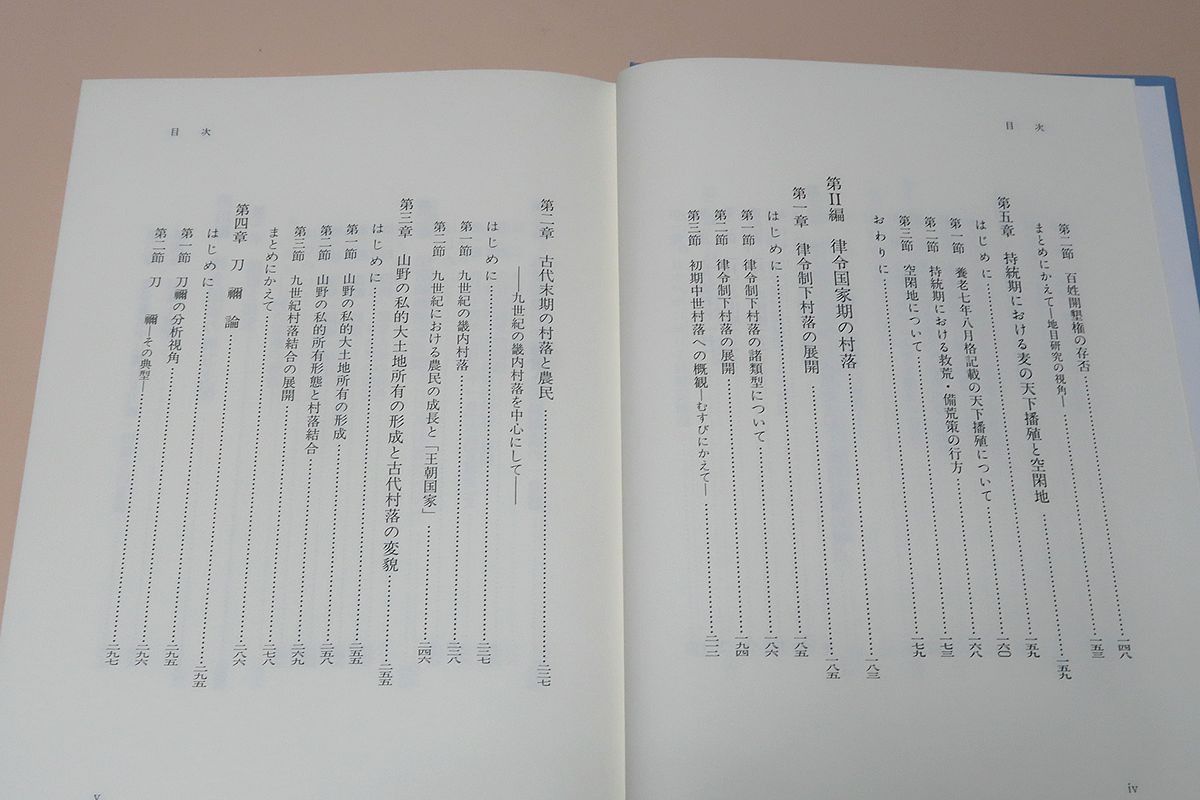 目次
第二節 百姓開墾権の存否………一四八
まとめにかえて―地目研究の視角―………一五三
第五章 持統期における麦の天下播殖と空閑地………一五九
はじめに………一五九
第一節 養老七年八月格記載の天下播殖について………一六〇
第二節 持統期における救荒・備荒策の行方………一六八
第三節 空閑地について………一七三
おわりに………一七九
第II編 律令国家期の村落………一八三
第一章 律令制下村落の展開………一八五
はじめに………一八五
第一節 律令制下村落の諸類型について………一八六
第二節 律令制下村落の展開………一九四
第三節 初期中世村落への概観―むすびにかえて―………二一二
iv
目次
第二章 古代末期の村落と農民………二二七
――九世紀の畿内村落を中心にして――
はじめに………二二七
第一節 九世紀の畿内村落………二二八
第二節 九世紀における農民の成長と「王朝国家」………二四六
第三章 山野の私的大土地所有の形成と古代村落の変貌………二五五
はじめに………二五五
第一節 山野の私的大土地所有の形成………二五八
第二節 山野の私的所有形態と村落結合………二六九
第三節 九世紀村落結合の展開………二七八
まとめにかえて………二八六
第四章 刀禰論………二九五
はじめに………二九五
第一節 刀禰の分析視角………二九六
第二節 刀禰―その典型―………二九七
v